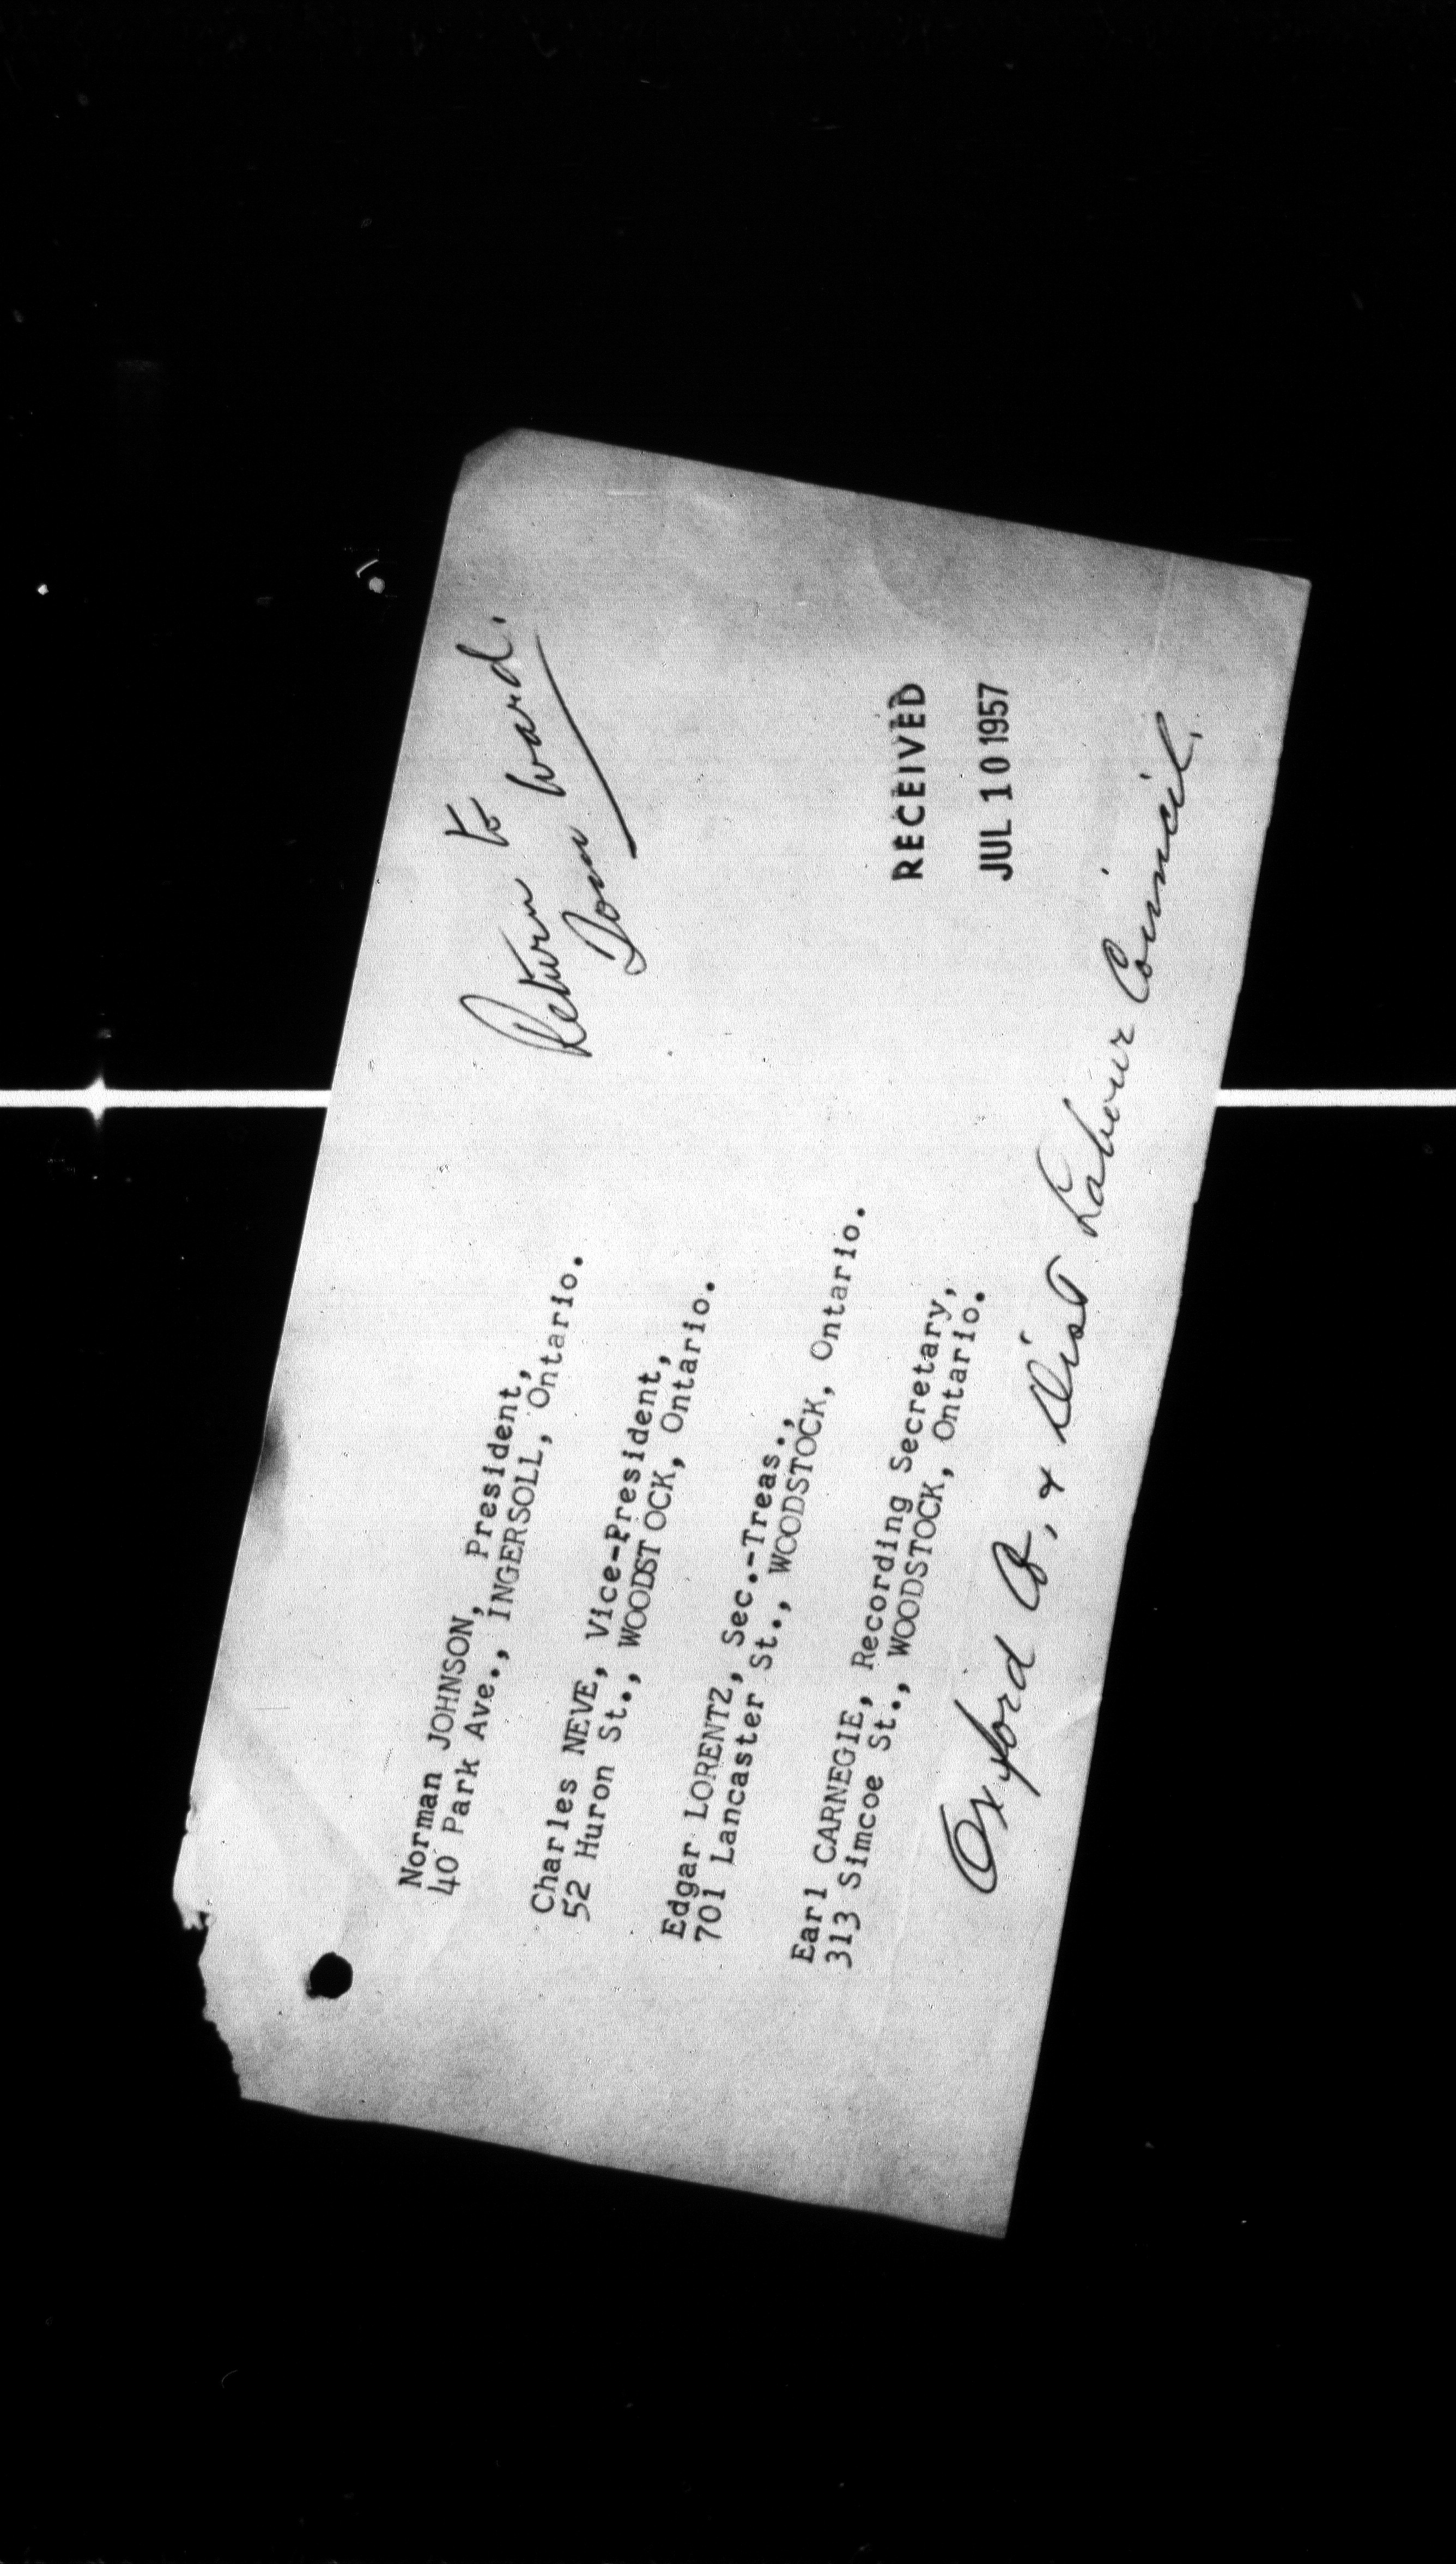 Return to
Don Ward.
Norman JOHNSON, President,
40 Park Ave., INGERSOLL, Ontario.
Charles NEVE, Vice-President,
52 Huron St., WOODST OCK, Ontario.
Edgar LORENTZ, Sec.-Treas.,
701 Lancaster St., WOODSTOCK, Ontario.
Earl CARNEGIE, Recording Secretary,
313 Simcoe St., WOODSTOCK, Ontario.
RECEIVED
JUL 10 1957
Oxford Co, & Dist Labour Council.